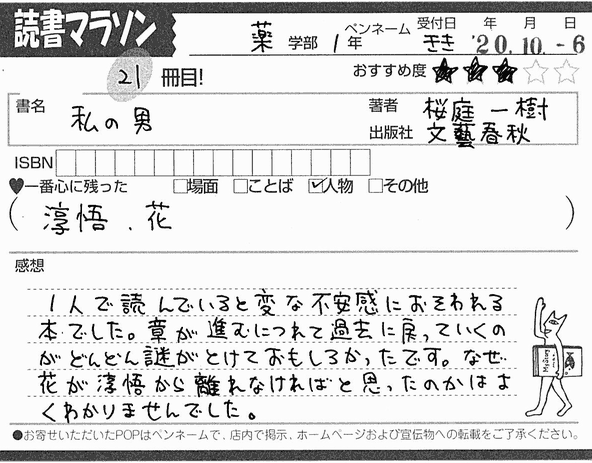 読書マラソン
薬 学部 1年
ペンネーム
そき
受付日 年 月 日
'20.10.-6
21 冊目!
おすすめ度 ★★★☆☆
書名 私の男
著者 桜庭一樹
出版社 文藝春秋
ISBN
♥一番心に残った □場面 □ことば ☑人物 □その他
( 淳悟、花 )
感想
1人で読んでいると変な不安感におそわれる
本でした。章が進むにつれて過去に戻っていくの
がどんどん謎がとけておもしろかったです。なぜ
花が淳悟から離れなければと思ったのかはよ
くわかりませんでした。
●お寄せいただいたPOPはペンネームで、店内で掲示、ホームページおよび宣伝物への転載をご了承ください。